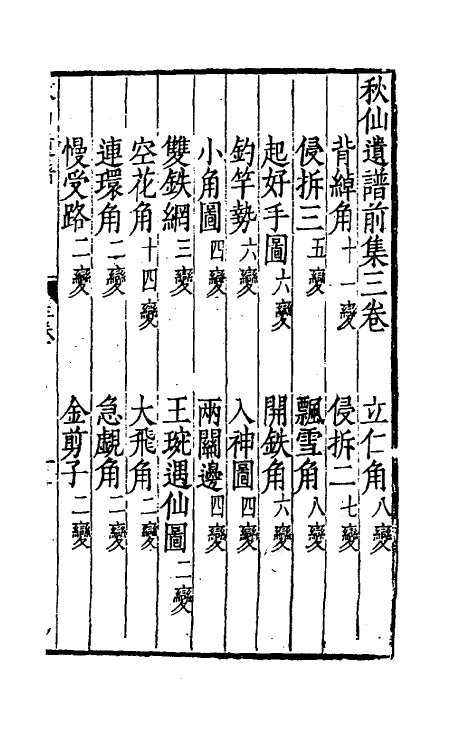 秋仙遺譜前集三卷　立仁角八變
背綽角十一變　侵拆二七變
侵拆三五變　飄雪角八變
起好手圖六變　開鉄角六變
釣竿勢六變　入神圖四變
小角圖四變　兩關邊四變
雙鉄網三變　王琬遇仙圖二變
空花角十四變　大飛角二變
連環角二變　急覷角二變
慢受路二變　金剪子二變